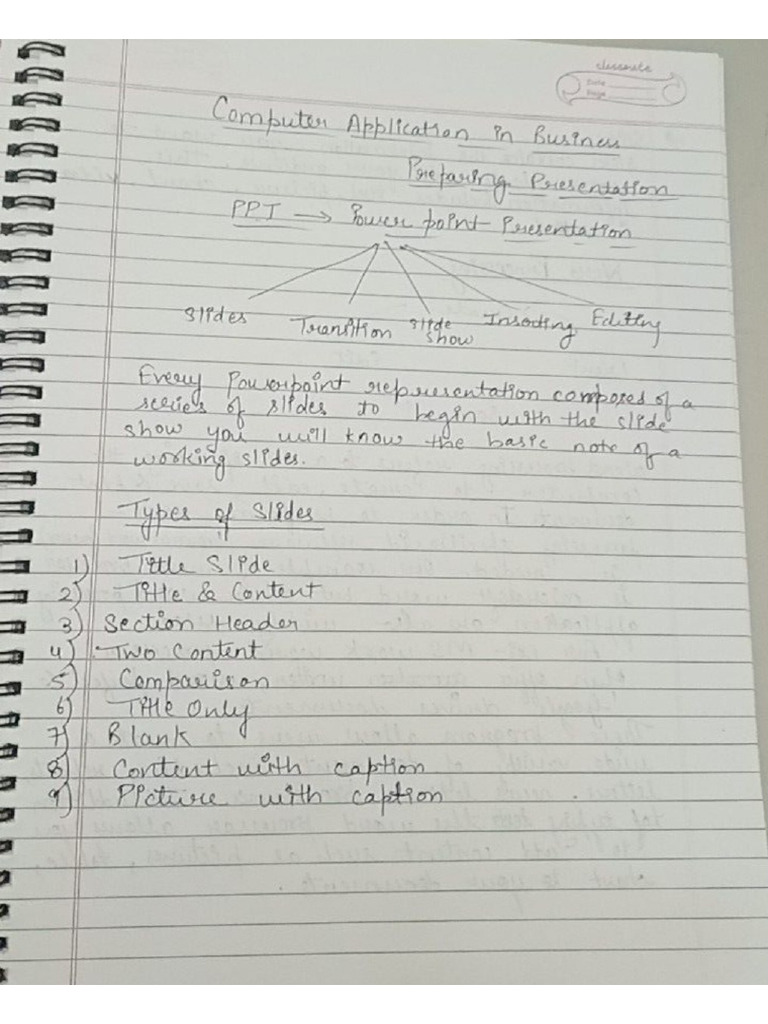 classmate
Date
Page
Computer Application in Business
Preparing Presentation
PPT → Power point Presentation
Slides Transition Slide show Insoding Editing
Every Powerpoint representation composed of a
series of slides to begin with the slide
show you will know the basic note of a
working slides.
Types of Slides
1) Title Slide
2) Title & Content
3) Section Header
4) Two Content
5) Comparison
6) Title Only
7) Blank
8) Content with caption
9) Picture with caption